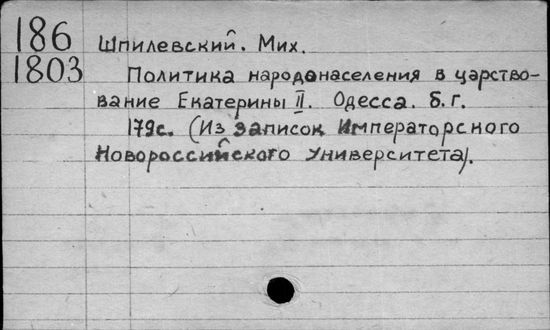 186
1803
Шпилевский. Мих.
Политика народонаселения в царство-
вание Екатерины II. Одесса. б.г.
179с. (Из записок Императорского
Новороссийского Университета).